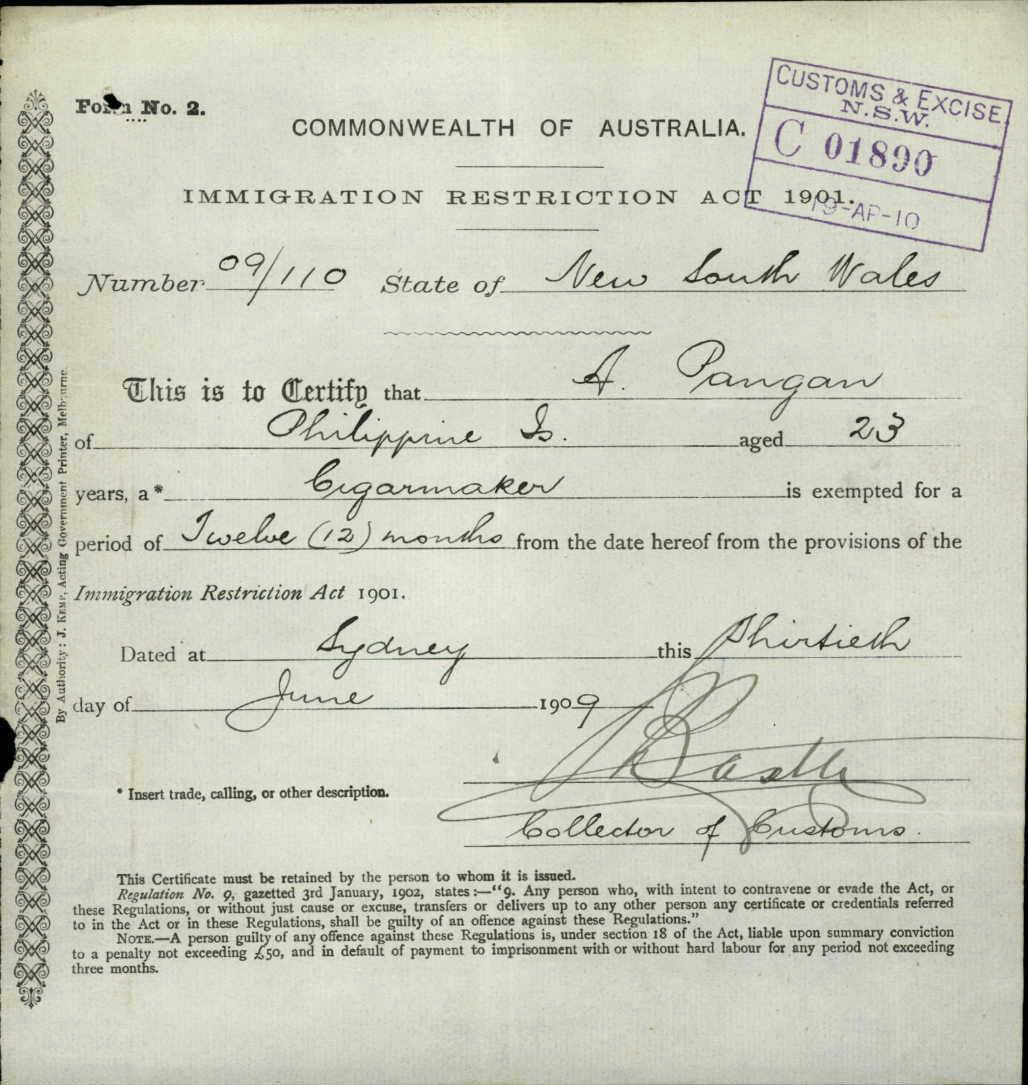 Form No. 2.
CUSTOMS & EXCISE
N.S.W.
C 01890
19-AP-10
COMMONWEALTH OF AUSTRALIA.
IMMIGRATION RESTRICTION ACT 1901.
Number 09/110 State of New South Wales
This is to Certify that A. Pangan
of Philippine Is. aged 23
years, a* Cigarmaker is exempted for a
period of Twelve (12) months from the date hereof from the provisions of the
Immigration Restriction Act 1901.
Dated at Sydney this Thirtieth
day of June 1909
* Insert trade, calling, or other description.
Collector of Customs.
This Certificate must be retained by the person to whom it is issued.
Regulation No. 9, gazetted 3rd January, 1902, states:—"9. Any person who, with intent to contravene or evade the Act, or
these Regulations, or without just cause or excuse, transfers or delivers up to any other person any certificate or credentials referred
to in the Act or in these Regulations, shall be guilty of an offence against these Regulations."
NOTE.—A person guilty of any offence against these Regulations is, under section 18 of the Act, liable upon summary conviction
to a penalty not exceeding £50, and in default of payment to imprisonment with or without hard labour for any period not exceeding
three months.
By Authority: J. KEMP, Acting Government Printer, Melbourne.